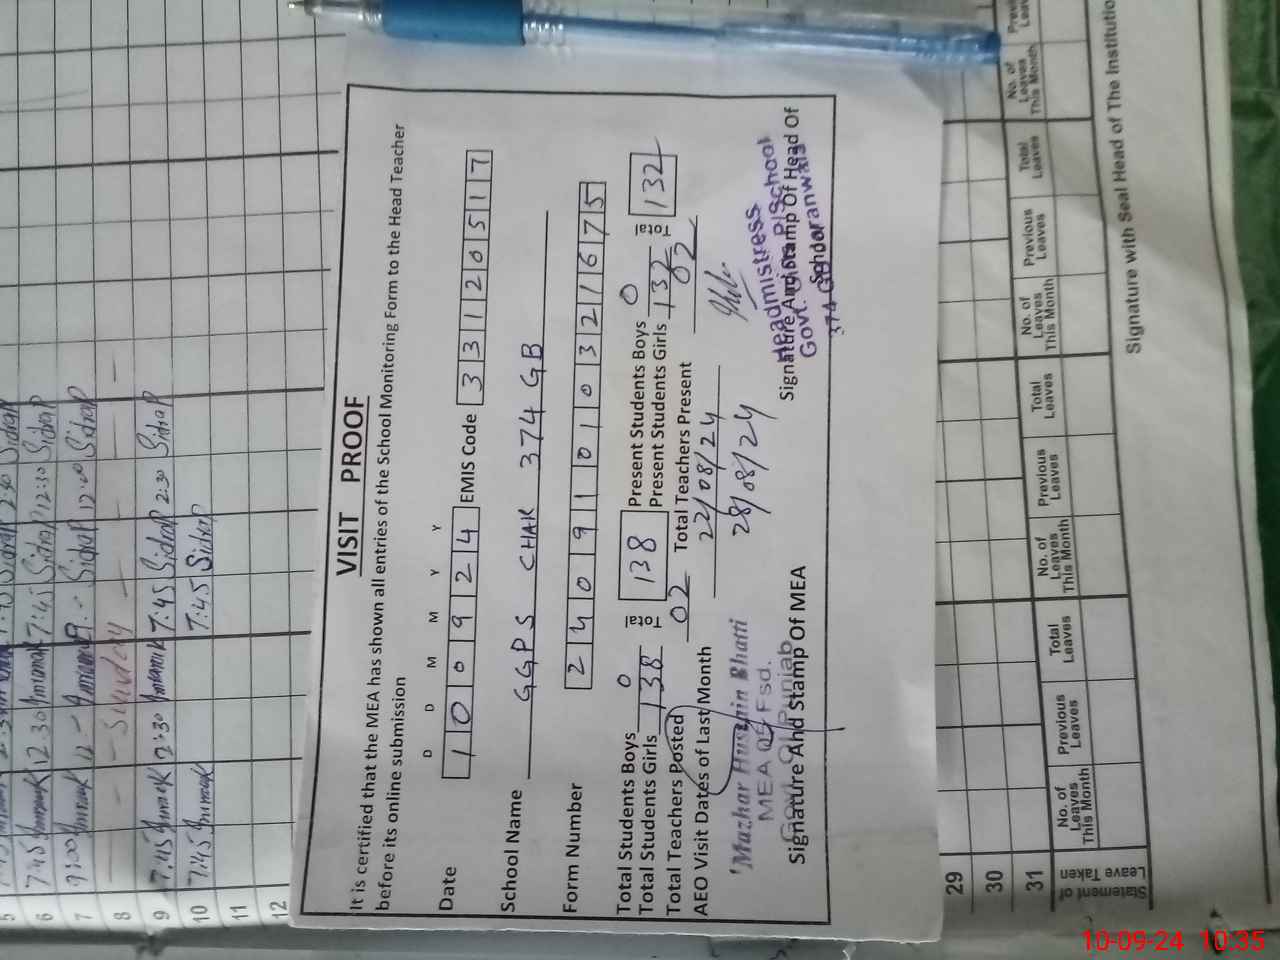 VISIT PROOF
It is certified that the MEA has shown all entries of the School Monitoring Form to the Head Teacher
before its online submission
D D M M Y Y
Date 1 0 0 9 2 4 EMIS Code 3 3 1 2 0 5 1 7
School Name GGPS CHAK 374 GB
Form Number 2 4 0 9 1 0 1 0 3 2 1 6 7 5
Total Students Boys 0 Total 138 Present Students Boys 0 Total 132
Total Students Girls 138 Present Students Girls 132
Total Teachers Posted 02 Total Teachers Present 02
AEO Visit Dates of Last Month 22/08/24
28/08/24
Mazhar Hussain Bhatti
MEA 05 Fsd.
Govt. Of Punjab
Signature And Stamp Of MEA
Headmistress
Govt. Girls P/School
374 GB Jaranwala
Signature And Stamp Of Head Of
School
5
6 7:45 12:30 7:45 Sidra P 12:30 Sidra P
7 9:00 12:- 9:- Sidra P 12:00 Sidra P
8 - - Sunday - - - -
9 7:45 12:30 7:45 Sidra P 2:30 Sidra P
10 7:45 7:45 Sidra P
11
12
29
30
31
Statement of Leave Taken
No. of Leaves This Month Previous Leaves Total Leaves No. of Leaves This Month Previous Leaves Total Leaves No. of Leaves This Month Previous Leaves Total Leaves No. of Leaves This Month
Signature with Seal Head of The Institutio
10-09-24 10:35